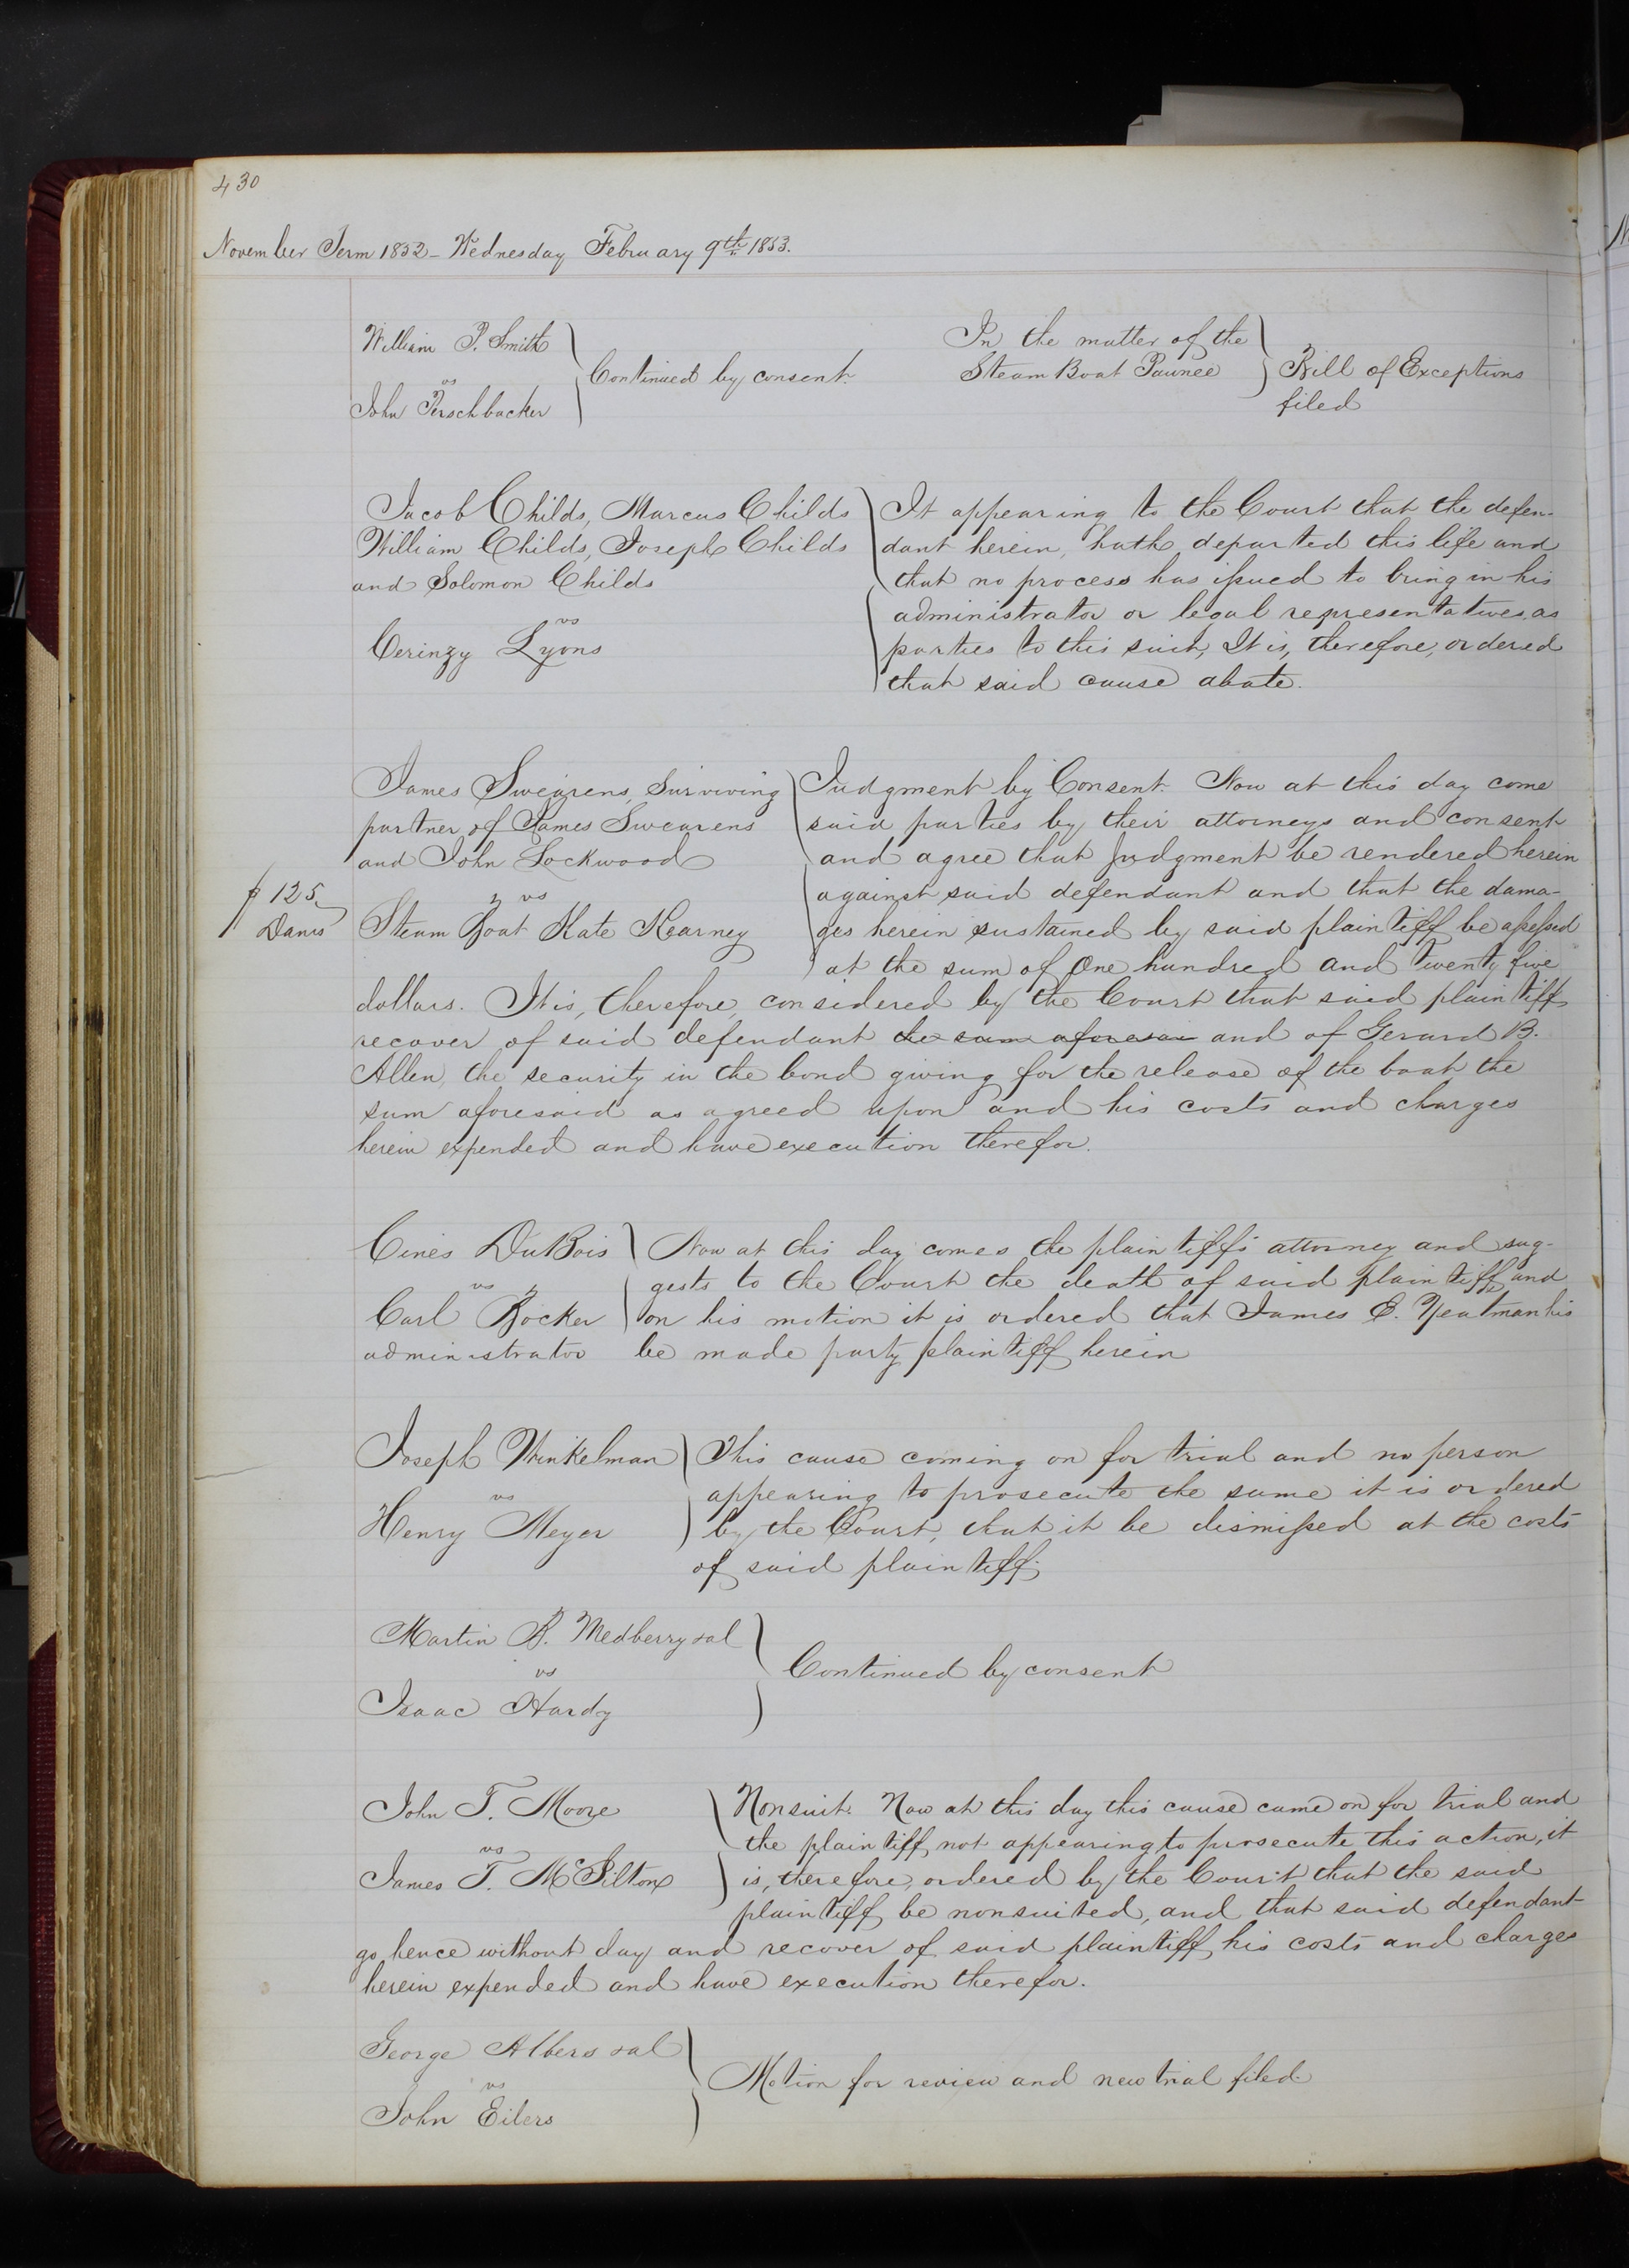 430
November Term 1852 - Wednesday February 9th 1853.
William P. Smith
vs
John Perschbacker
Continued by consent.
In the matter of the
Steam Boat Pawnee
Bill of Exceptions
filed
Jacob Childs, Marcus Childs
William Childs, Joseph Childs
and Solomon Childs
vs
Cerinzy Lyons
It appearing to the Court that the defen-
dant herein, hath departed this life and
that no process has issued to bring in his
administrator or legal representatives, as
parties to this suit, It is, therefore, ordered
that said cause abate.
James Swearens, Surviving
partner of James Swearens
and John Lockwood
vs
Steam Boat Kate Kearney
$125
Dams
Judgment by Consent. Now at this day come
said parties by their attorneys and consent
and agree that judgment be rendered herein
against said defendant and that the dama-
ges herein sustained by said plaintiff be assessed
at the sum of One hundred and twenty five
dollars. It is, therefore, considered by the Court that said plaintiff
recover of said defendant the sum aforesai and of Gerard B.
Allen, the security in the bond giving for the release of the boat the
sum aforesaid as agreed upon and his costs and charges
herein expended and have execution therefor.
Cines DuBois
vs
Carl Bocker
Now at this day comes the plaintiff's attorney and sug-
gests to the Court the death of said plaintiff and
on his motion it is ordered that James E. Yeatman his
administrator be made party plaintiff herein
Joseph Winkelman
vs
Henry Meyer
This cause coming on for trial and no person
appearing to prosecute the same it is ordered
by the Court, that it be dismissed at the costs
of said plaintiff.
Martin B. Medberry &al
vs
Isaac Hardy
Continued by consent
John T. Moore
vs
James T. McPilton
Nonsuit. Now at this day this cause came on for trial and
the plaintiff not appearing to prosecute this action, it
is, therefore, ordered by the Court that the said
plaintiff be nonsuited, and that said defendant
go hence without day and recover of said plaintiff his costs and charges
herein expended and have execution therefor.
George Albers &al
vs
John Eilers
Motion for review and new trial filed.